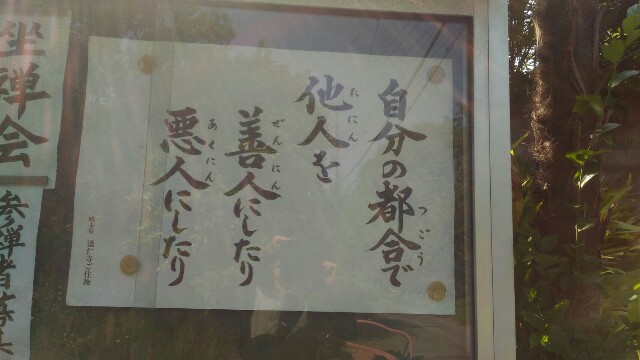 自分の都合で
つごう
他人を
たにん
善人にしたり
ぜんにん
悪人にしたり
あくにん
坐禅会